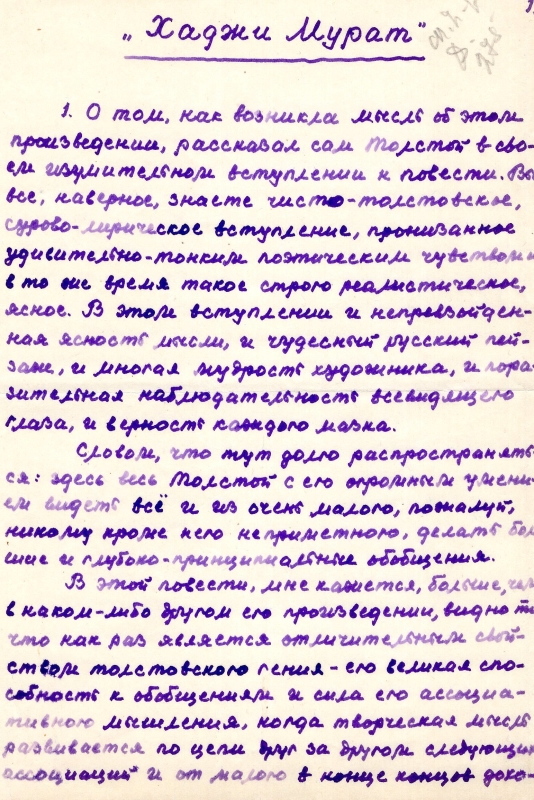 „Хаджи Мурат"
1. О том, как возникла мысль об этом
произведении, рассказал сам Толстой в сво-
ем изумительном вступлении к повести. Вы
все, наверное, знаете чисто-толстовское,
сурово-лирическое вступление, пронизанное
удивительно-тонким поэтическим чувством и
в то же время такое строго реалистическое,
ясное. В этом вступлении и непревзойден-
ная ясность мысли, и чудесный русский пей-
заж, и многая мудрость художника, и пора-
зительная наблюдательность всевидящего
глаза, и верность каждого мазка.
Словом, что тут долго распространять-
ся: здесь весь Толстой с его огромным умени-
ем видеть всё и из очень малого, пожалуй,
никому кроме него неприметного, делать боль-
шие и глубоко-принципиальные обобщения.
В этой повести, мне кажется, больше, чем
в каком-либо другом его произведении, видно то,
что как раз является отличительным свой-
ством толстовского гения - его великая спо-
собность к обобщениям и сила его ассоциа-
тивного мышления, когда творческая мысль
развивается по цепи друг за другом следующих
ассоциаций и от малого в конце концов дохо-